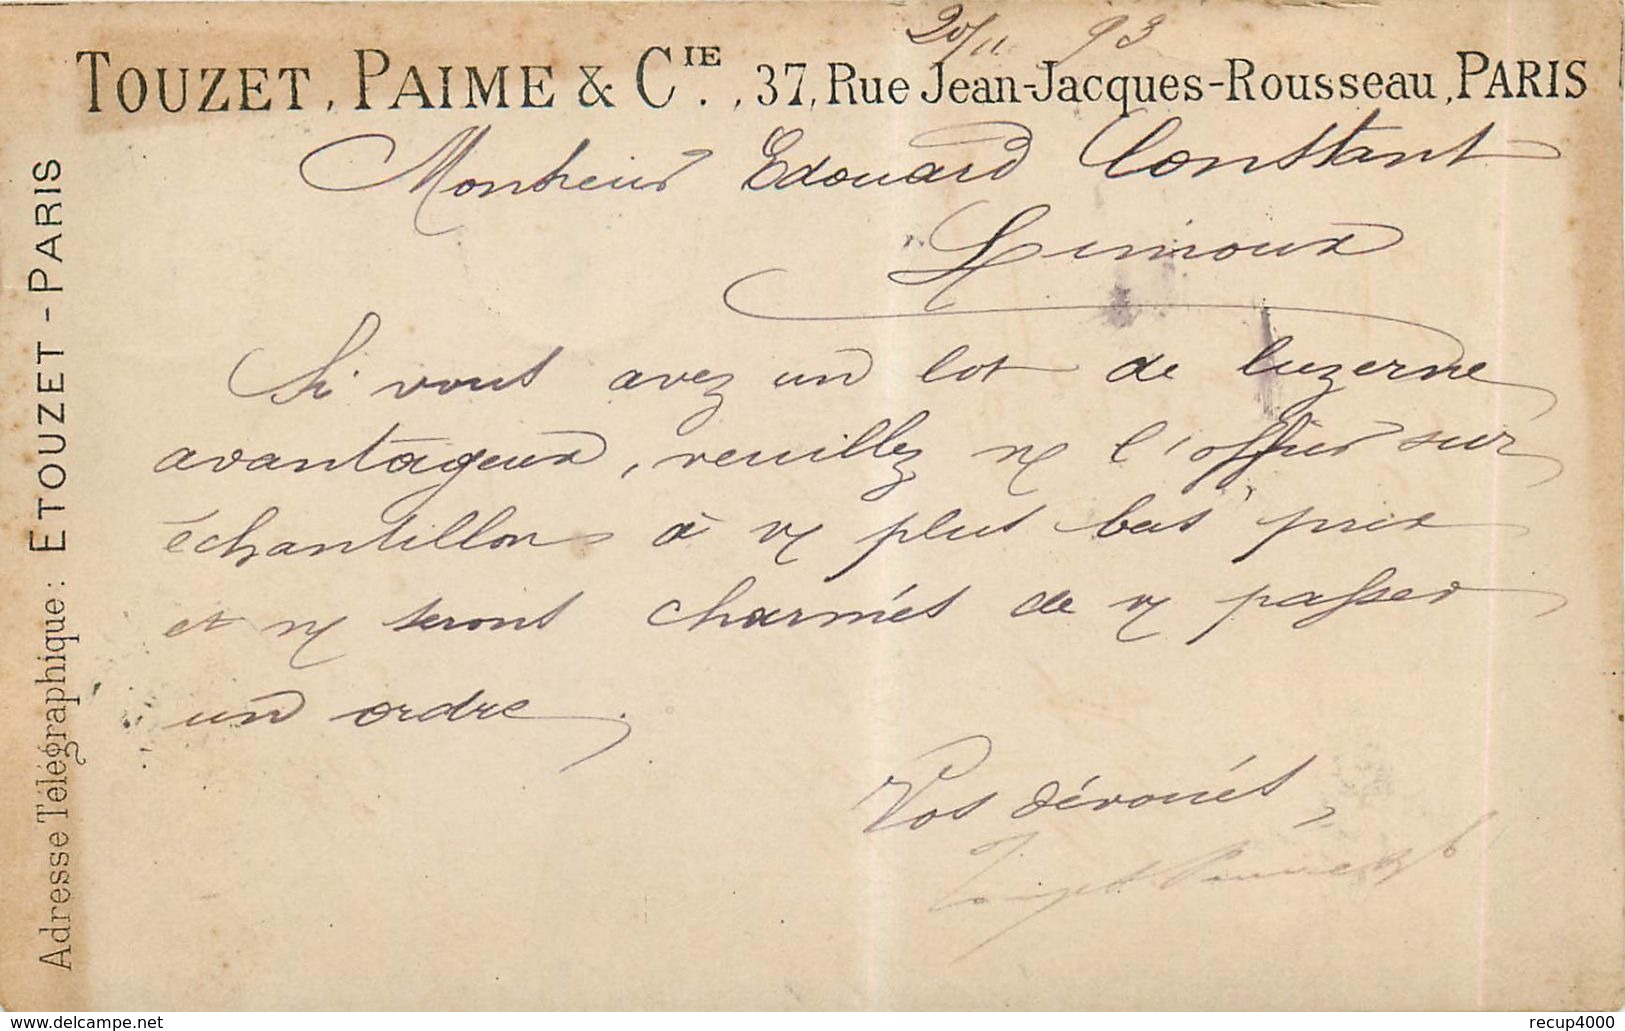 20/11 93
TOUZET, PAIME & CIE., 37, Rue Jean-Jacques-Rousseau, PARIS
Monsieur Edouard Constant
Limoux
Si vous avez un lot de luzerne
avantageux, veuillez ns l'offrir sur
échantillon à vs plus bas prix
et ns serons charmés de vs passer
un ordre.
Vos dévoués,
Touzet Paime & Cie
Adresse Télégraphique: ETOUZET-PARIS
recup4000